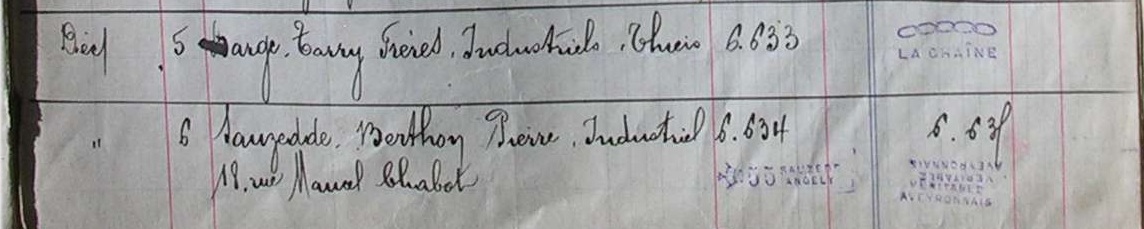 Déc 5 Barge. Tarry Frères. Industriels. Thiers 6.633 LA CHAÎNE
" 6 Sauzedde. Berthon Pierre. Industriel 6.634 6.635
18. rue Manuel Chabot SAUZEDDE ANGELY VÉRITABLE AVEYRONNAIS